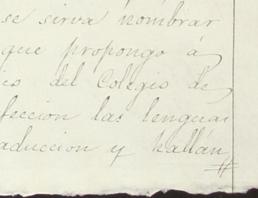 se sirva nombrar
que propongo á
io del Colegio de
feccion las lenguas
aduccion y hallán